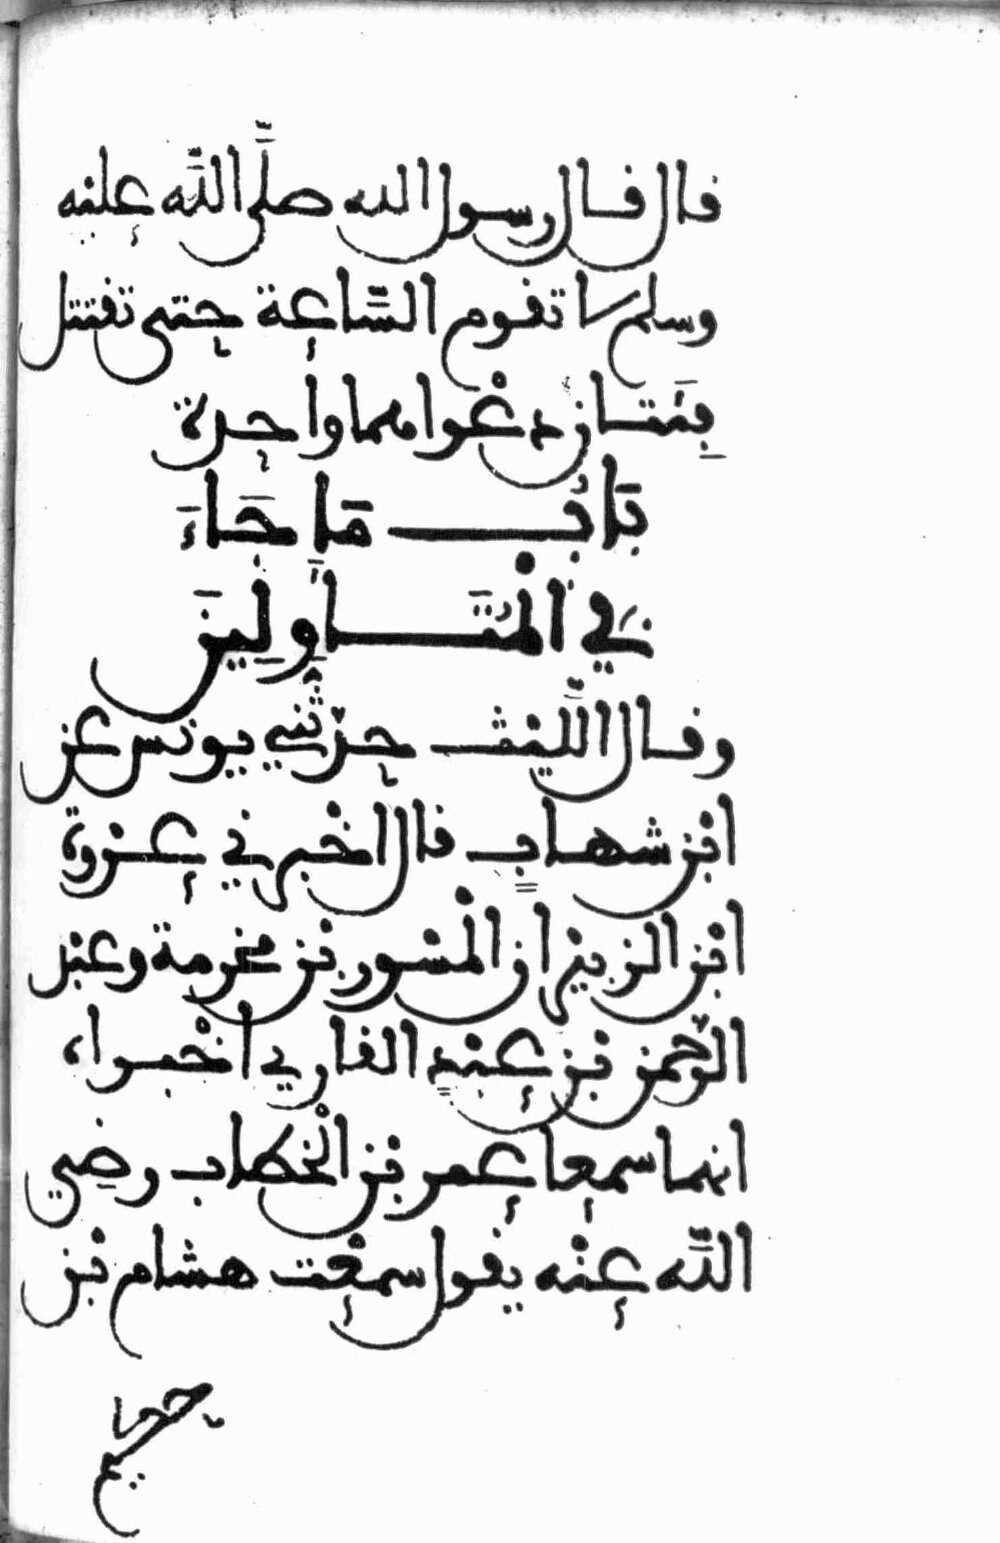 قال قال رسول الله صلى الله عليه
وسلم لا تقوم الساعة حتى تقتتل
فئتان دعواهما واحدة
بَابُ مَا جَاءَ
فِي الْمُتَأَوِّلِينَ
وقال اللَّيث حدّثني يونس عن
ابن شهاب قال اخبرني عروة
ابن الزبير ان المسور بن مخرمة وعبد
الرحمن بن عبد القاري اخبراه
انهما سمعا عمر بن الخطاب رضي
الله عنه يقول سمعت هشام بن
حكيم